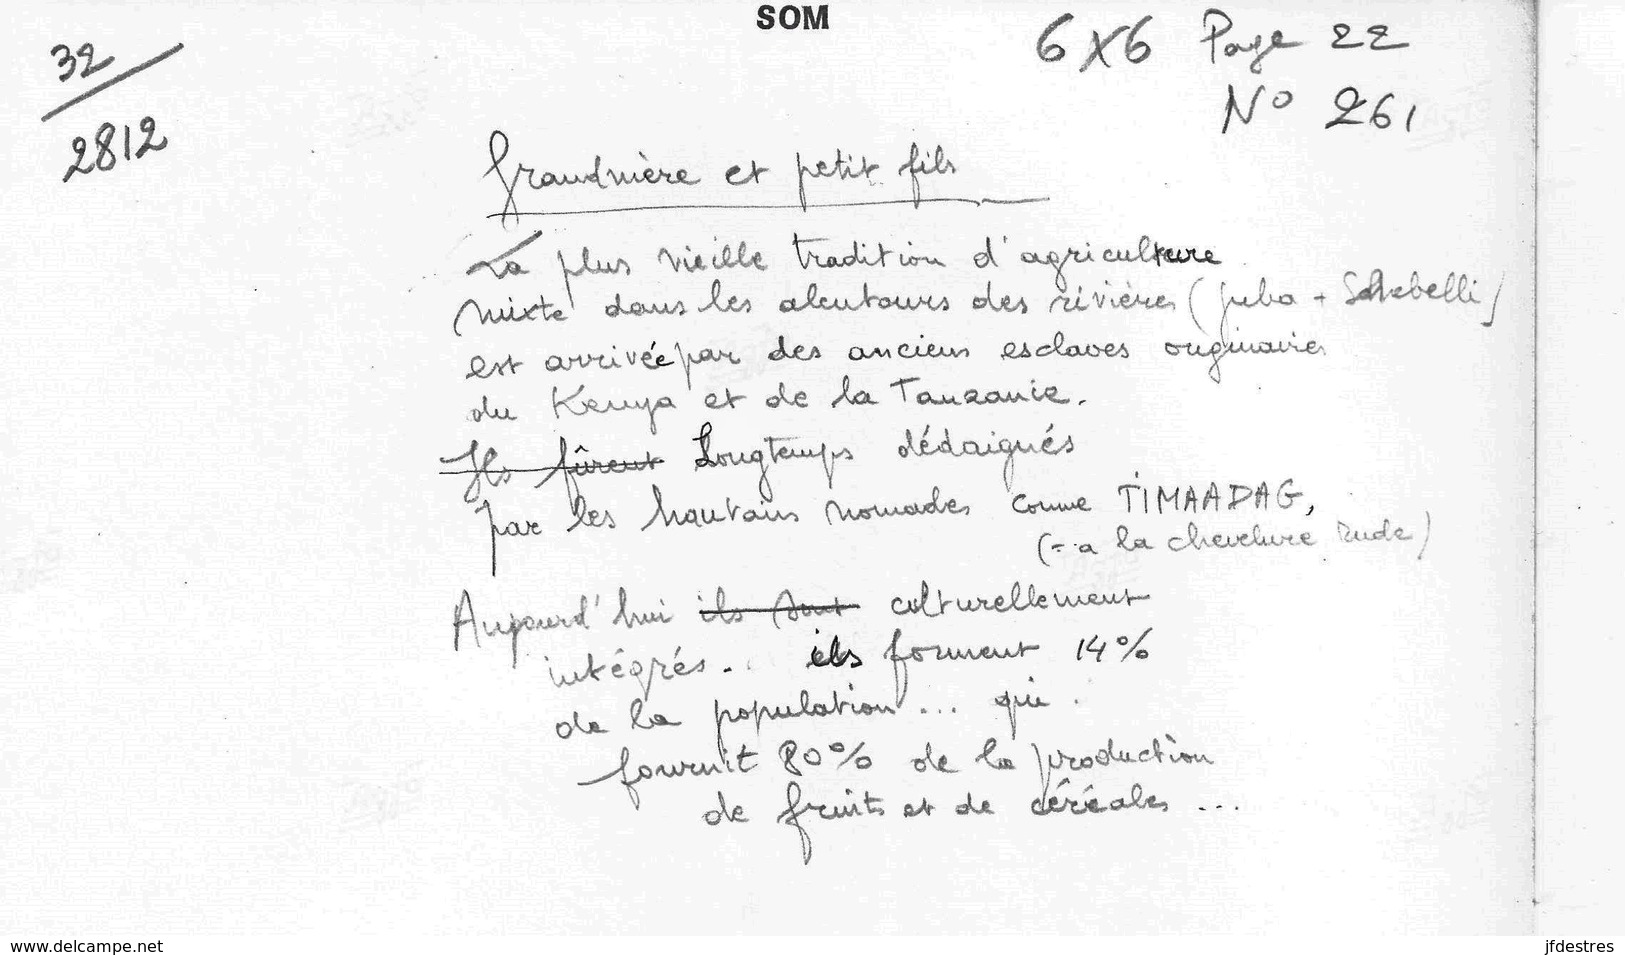 SOM
32
2812
6x6 Page 22
N° 261
Grandmère et petit fils
La plus vieille tradition d'agriculture
mixte dans les alentours des rivières (Juba + Schebelli)
est arrivée par des anciens esclaves originaires
du Kenya et de la Tanzanie.
Ils fûrent Longtemps dédaignés
par les hautains nomades comme TIMAADAG,
(= a la chevelure rude)
Aujourd'hui ils sont culturellement
intégrés.. ils forment 14%
de la population... qui
fournit 80% de la production
de fruits et de céréales ...
www.delcampe.net
jfdestres